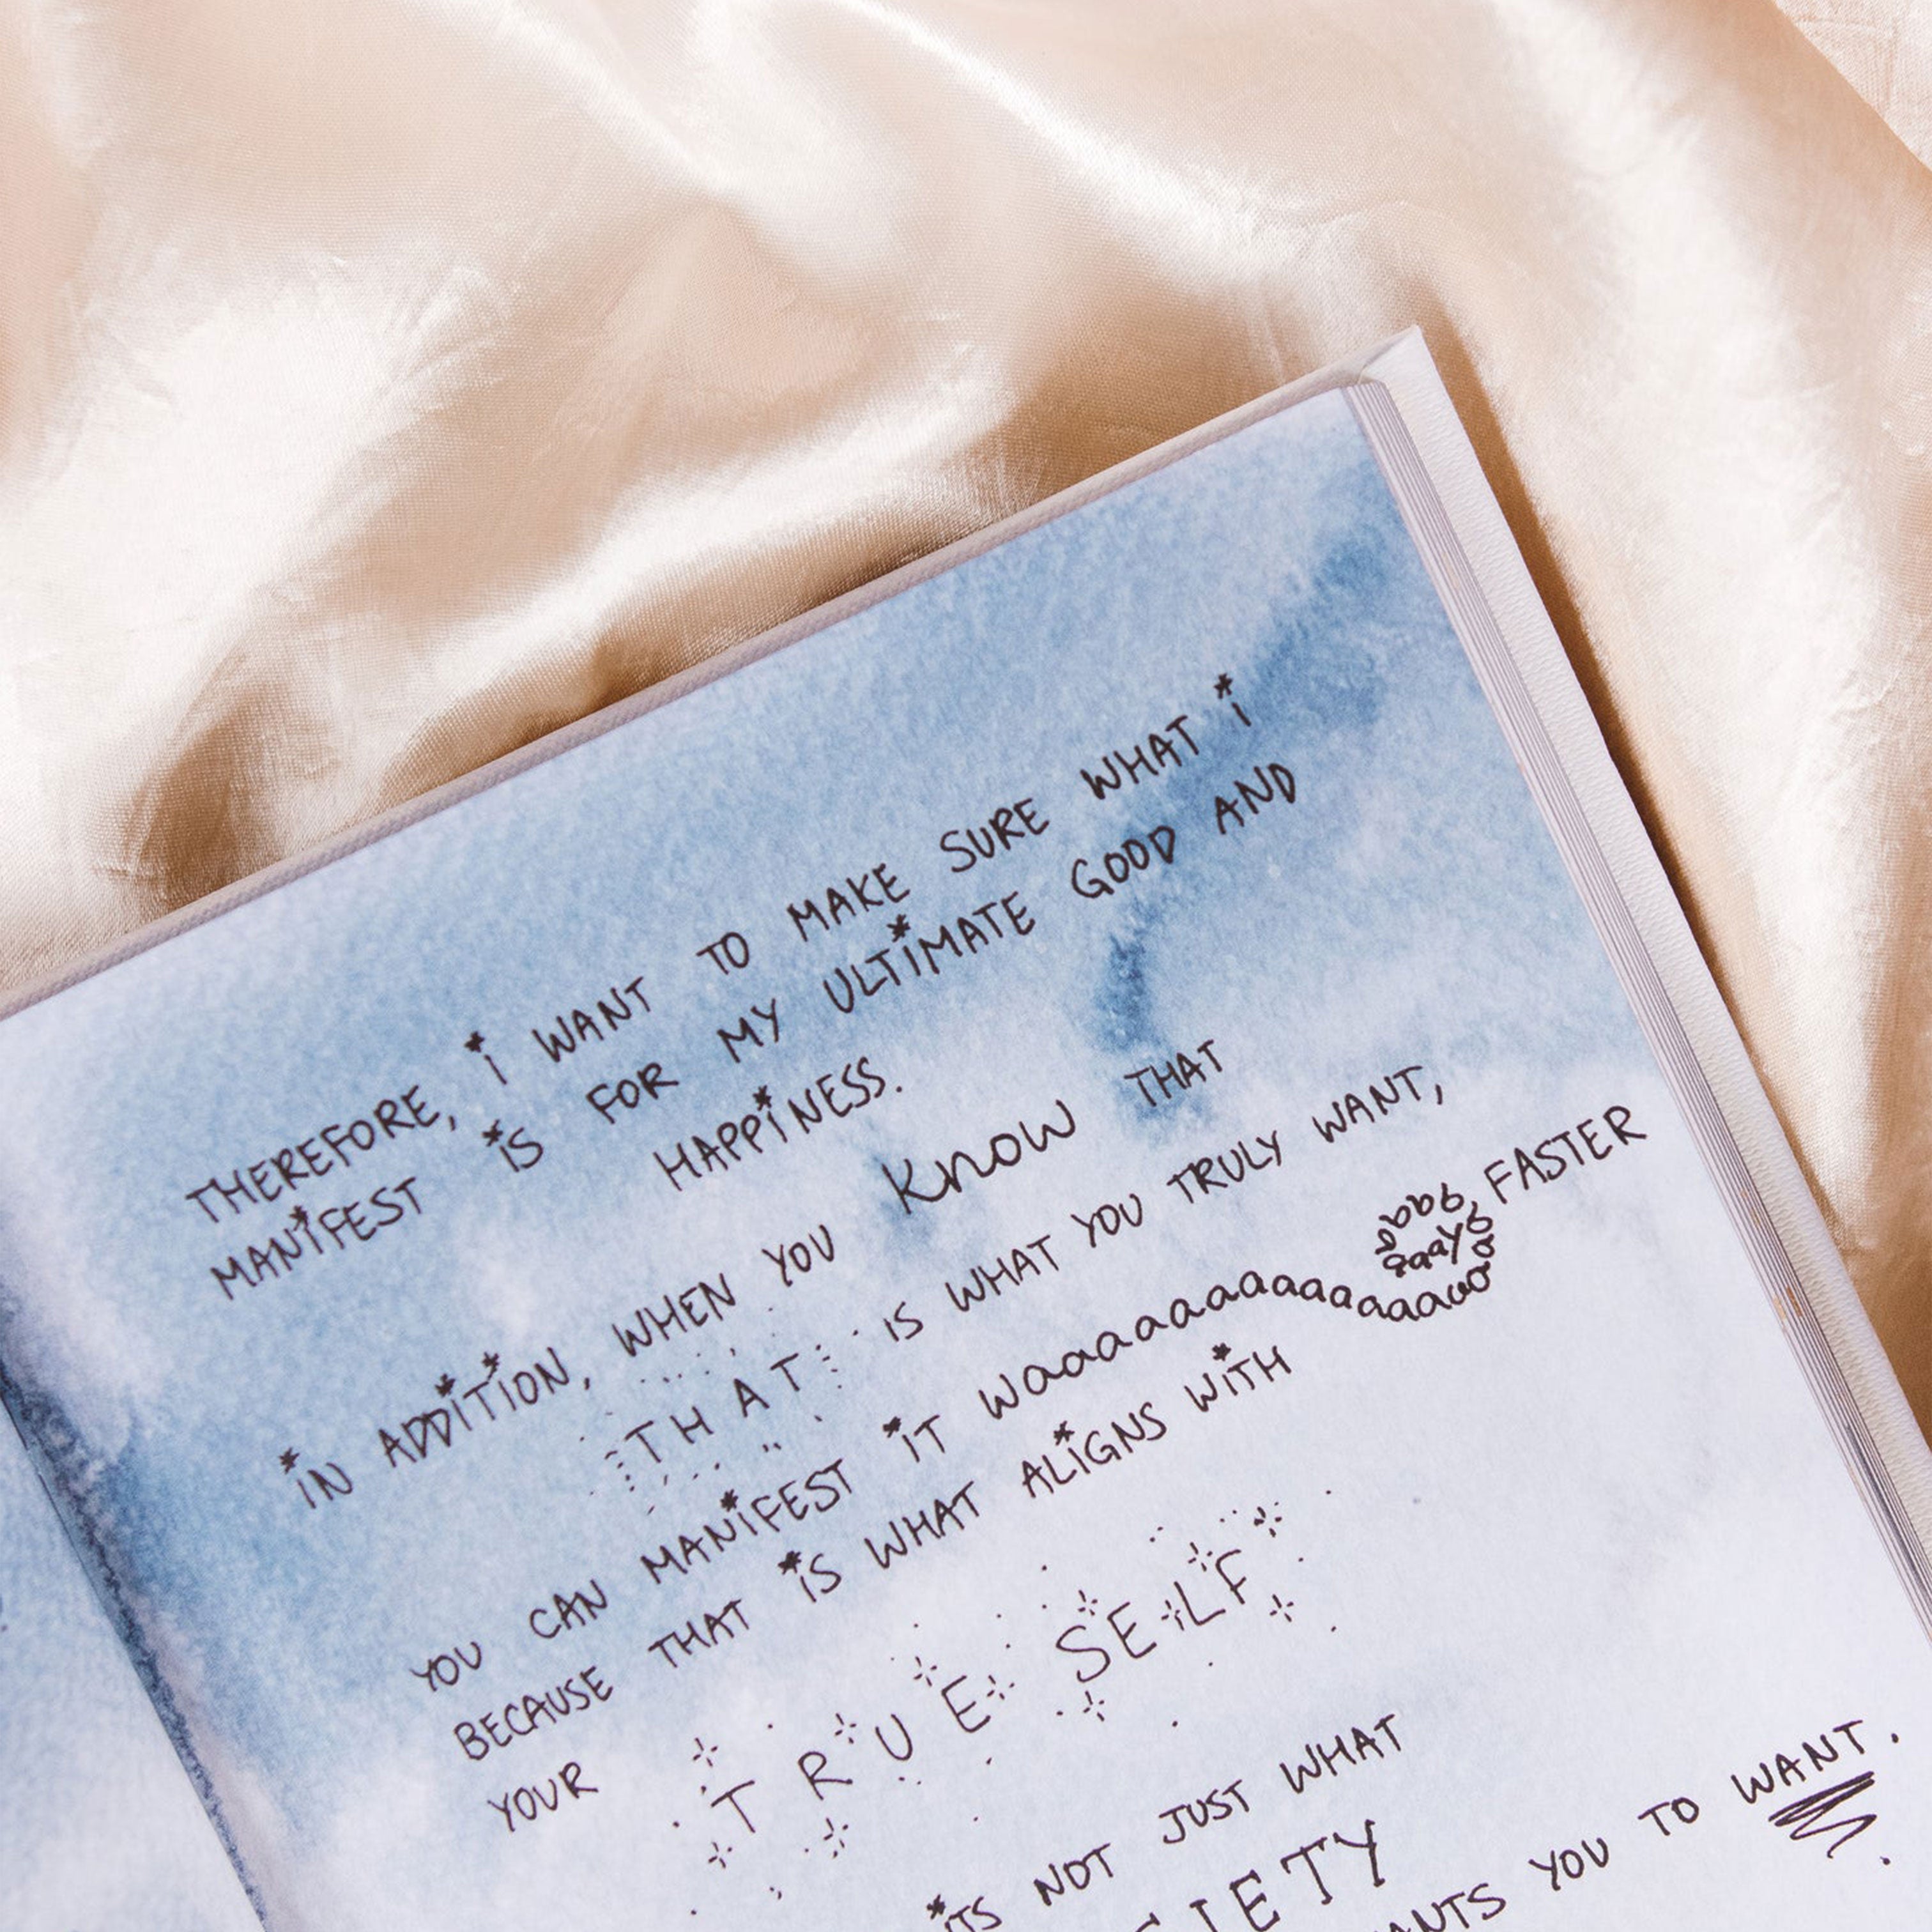 THEREFORE, i WANT TO MAKE SURE WHAT i
MANiFEST iS FOR MY ULTiMATE GOOD AND
HAPPiNESS.
iN ADDiTiON, WHEN YOU KnoW THAT
THAT IS WHAT YOU TRULY WANT,
YOU CAN MANiFEST iT waaaaaaaaaaaaaaaaaaaaaaaaaaay FASTER
BECAUSE THAT iS WHAT ALiGNS WiTH
YOUR TRUE SELF
NOT JUST WHAT
YOU TO WANT.